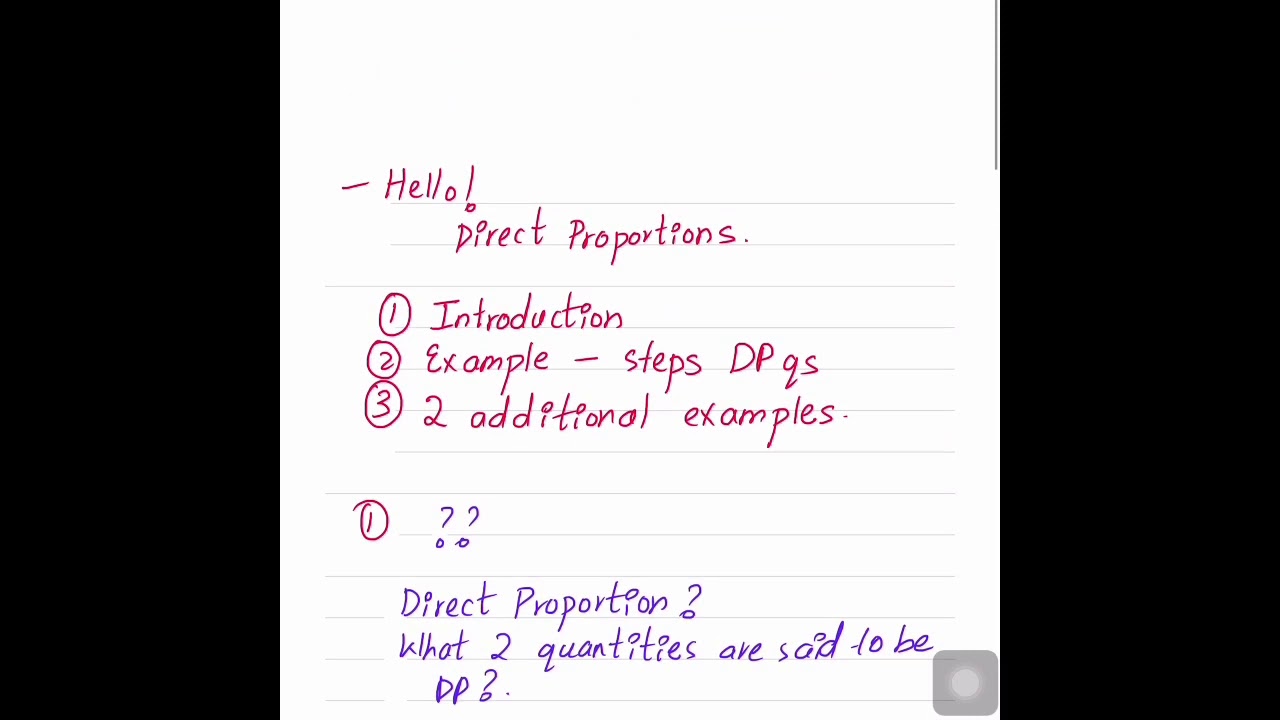 - Hello!
Direct Proportions.
① Introduction
② Example - steps DP qs
③ 2 additional examples.
① ??
Direct Proportion?
What 2 quantities are said to be
DP?.